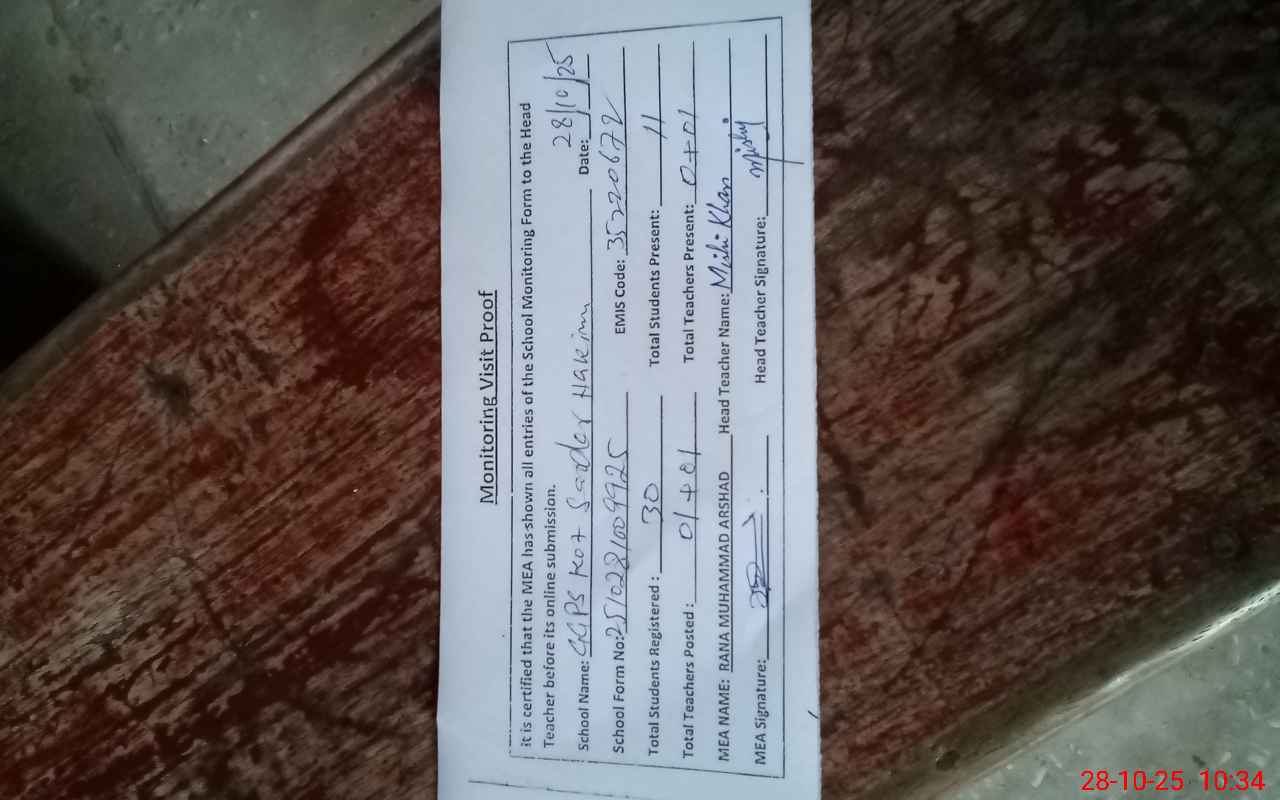 Monitoring Visit Proof
it is certified that the MEA has shown all entries of the School Monitoring Form to the Head
Teacher before its online submission.
School Name: GGPS Kot Sarder Hakim Date: 28/10/25
School Form No: 2510281009925 EMIS Code: 35220672
Total Students Registered : 30 Total Students Present: 11
Total Teachers Posted : 01+01 Total Teachers Present: 0+01
MEA NAME: RANA MUHAMMAD ARSHAD Head Teacher Name: Mishi Khan
MEA Signature: Head Teacher Signature:
28-10-25 10:34